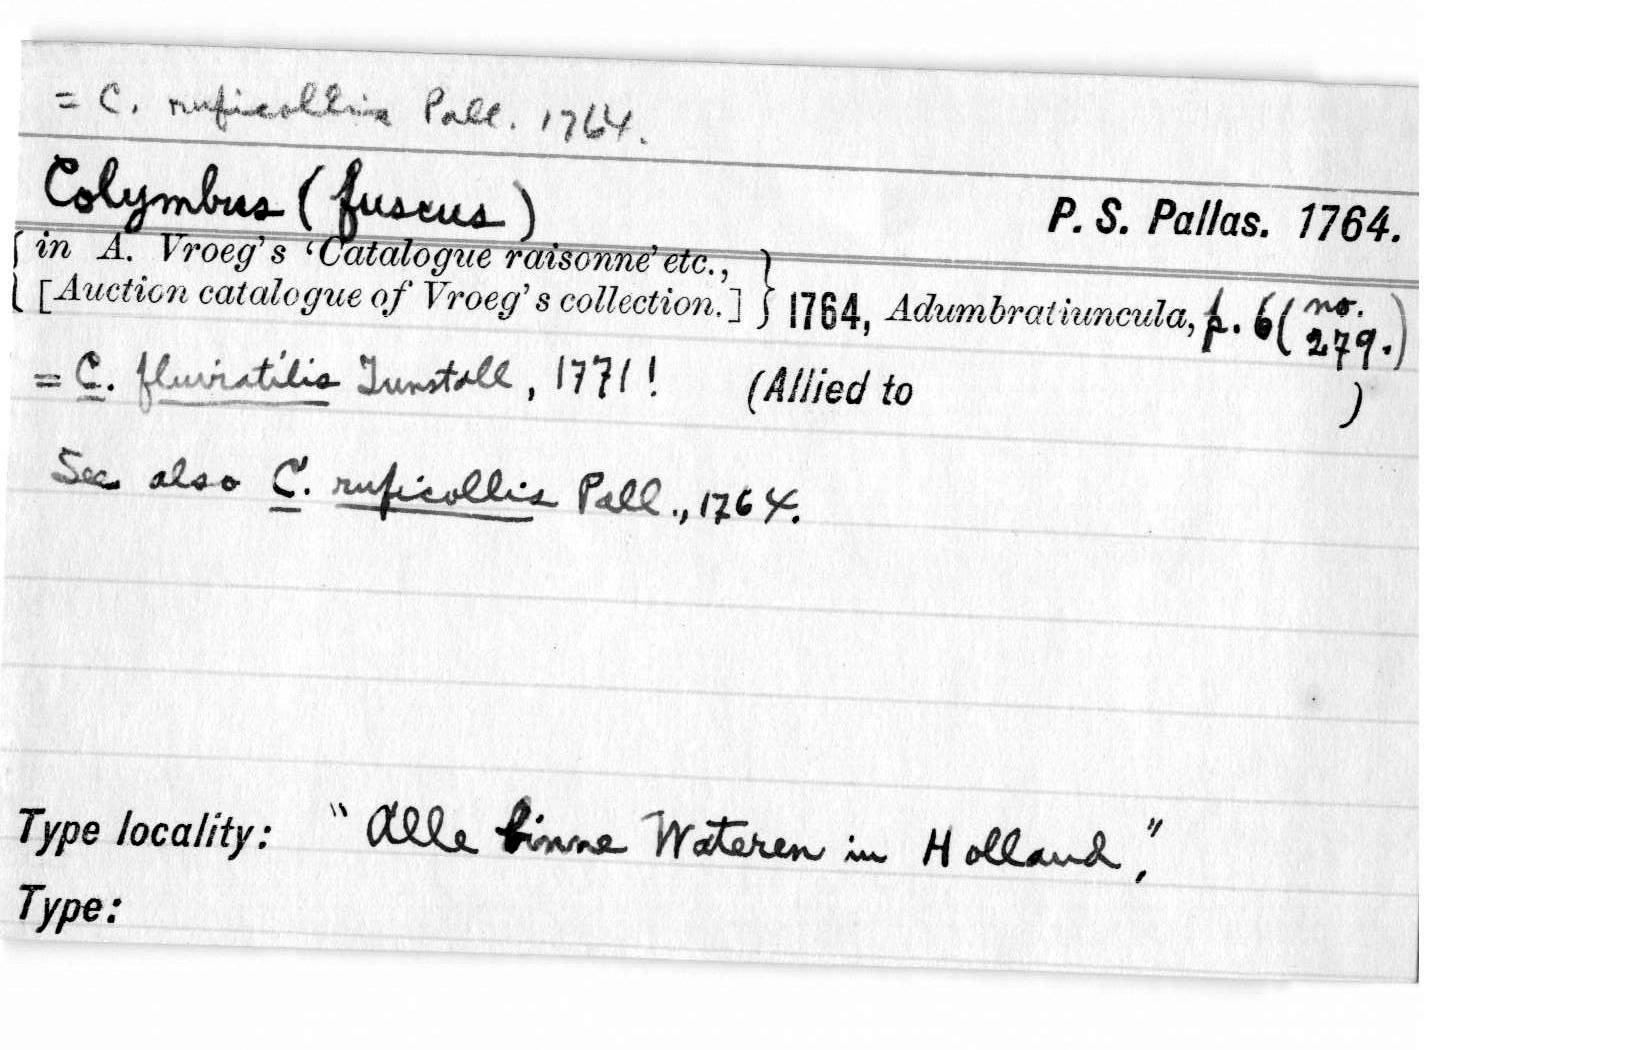 = C. ruficollis Pall. 1764.
Colymbus (fuscus)
P. S. Pallas. 1764.
{ in A. Vroeg's 'Catalogue raisonné' etc.,
[Auction catalogue of Vroeg's collection.] } 1764, Adumbratiuncula, p. 6 (no. 279.)
= C. fluviatilis Tunstall, 1771! (Allied to )
See also C. ruficollis Pall., 1764.
Type locality: "Alle binne Wateren in Holland,"
Type: